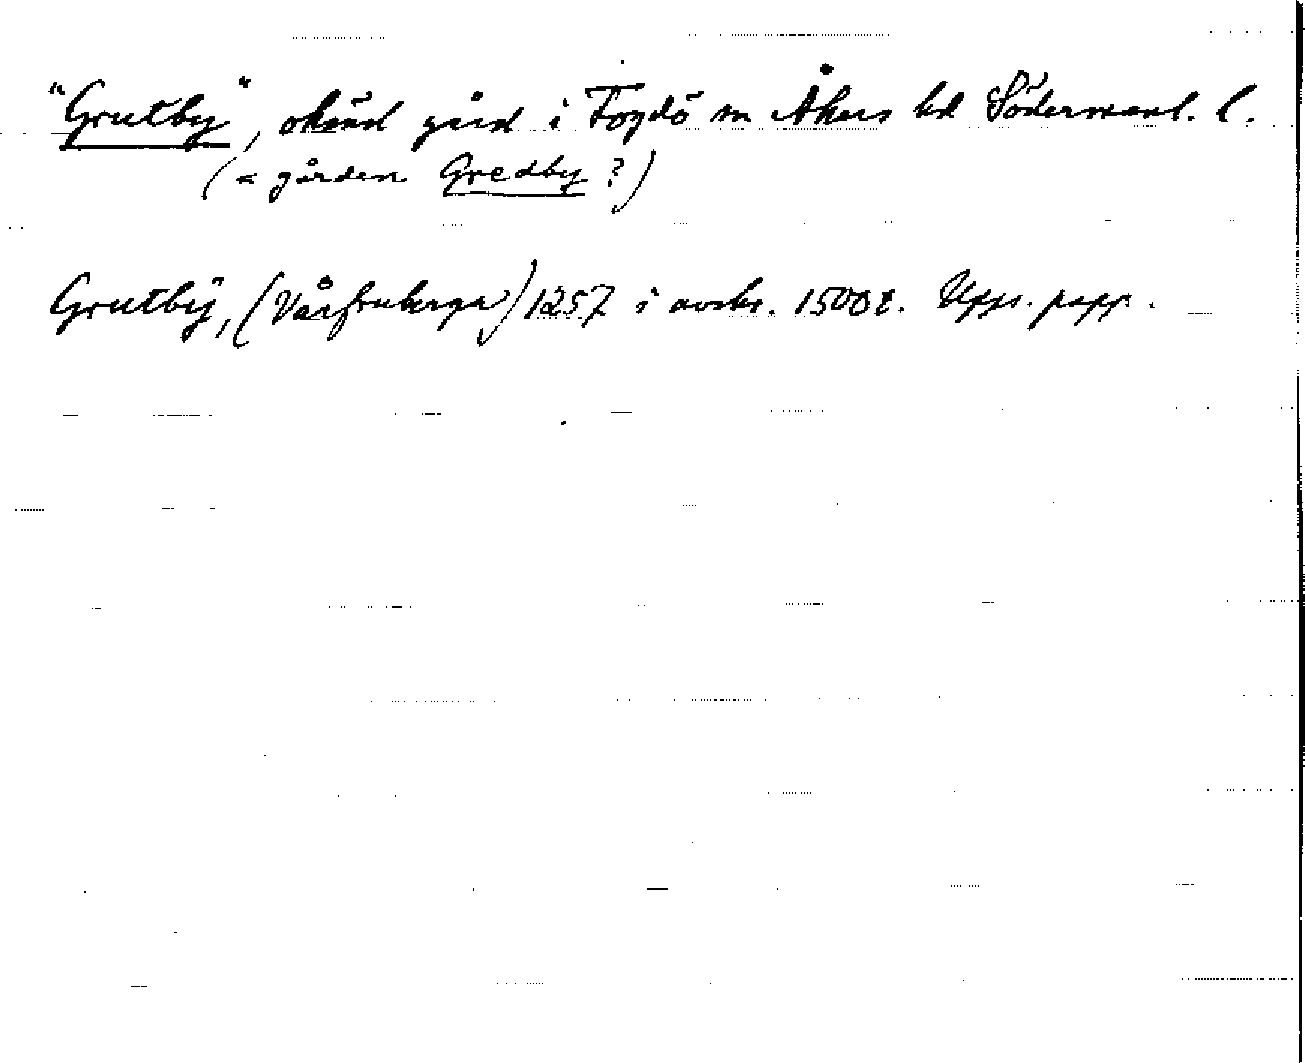 "Grutby", okänd gård i Fogdö sn Åkers hd Södermanl. l.
(= gården Gredby ?)
Grutbÿ, (Vårfruberga) 1257 i avskr. 1500 t. Upps. papp.